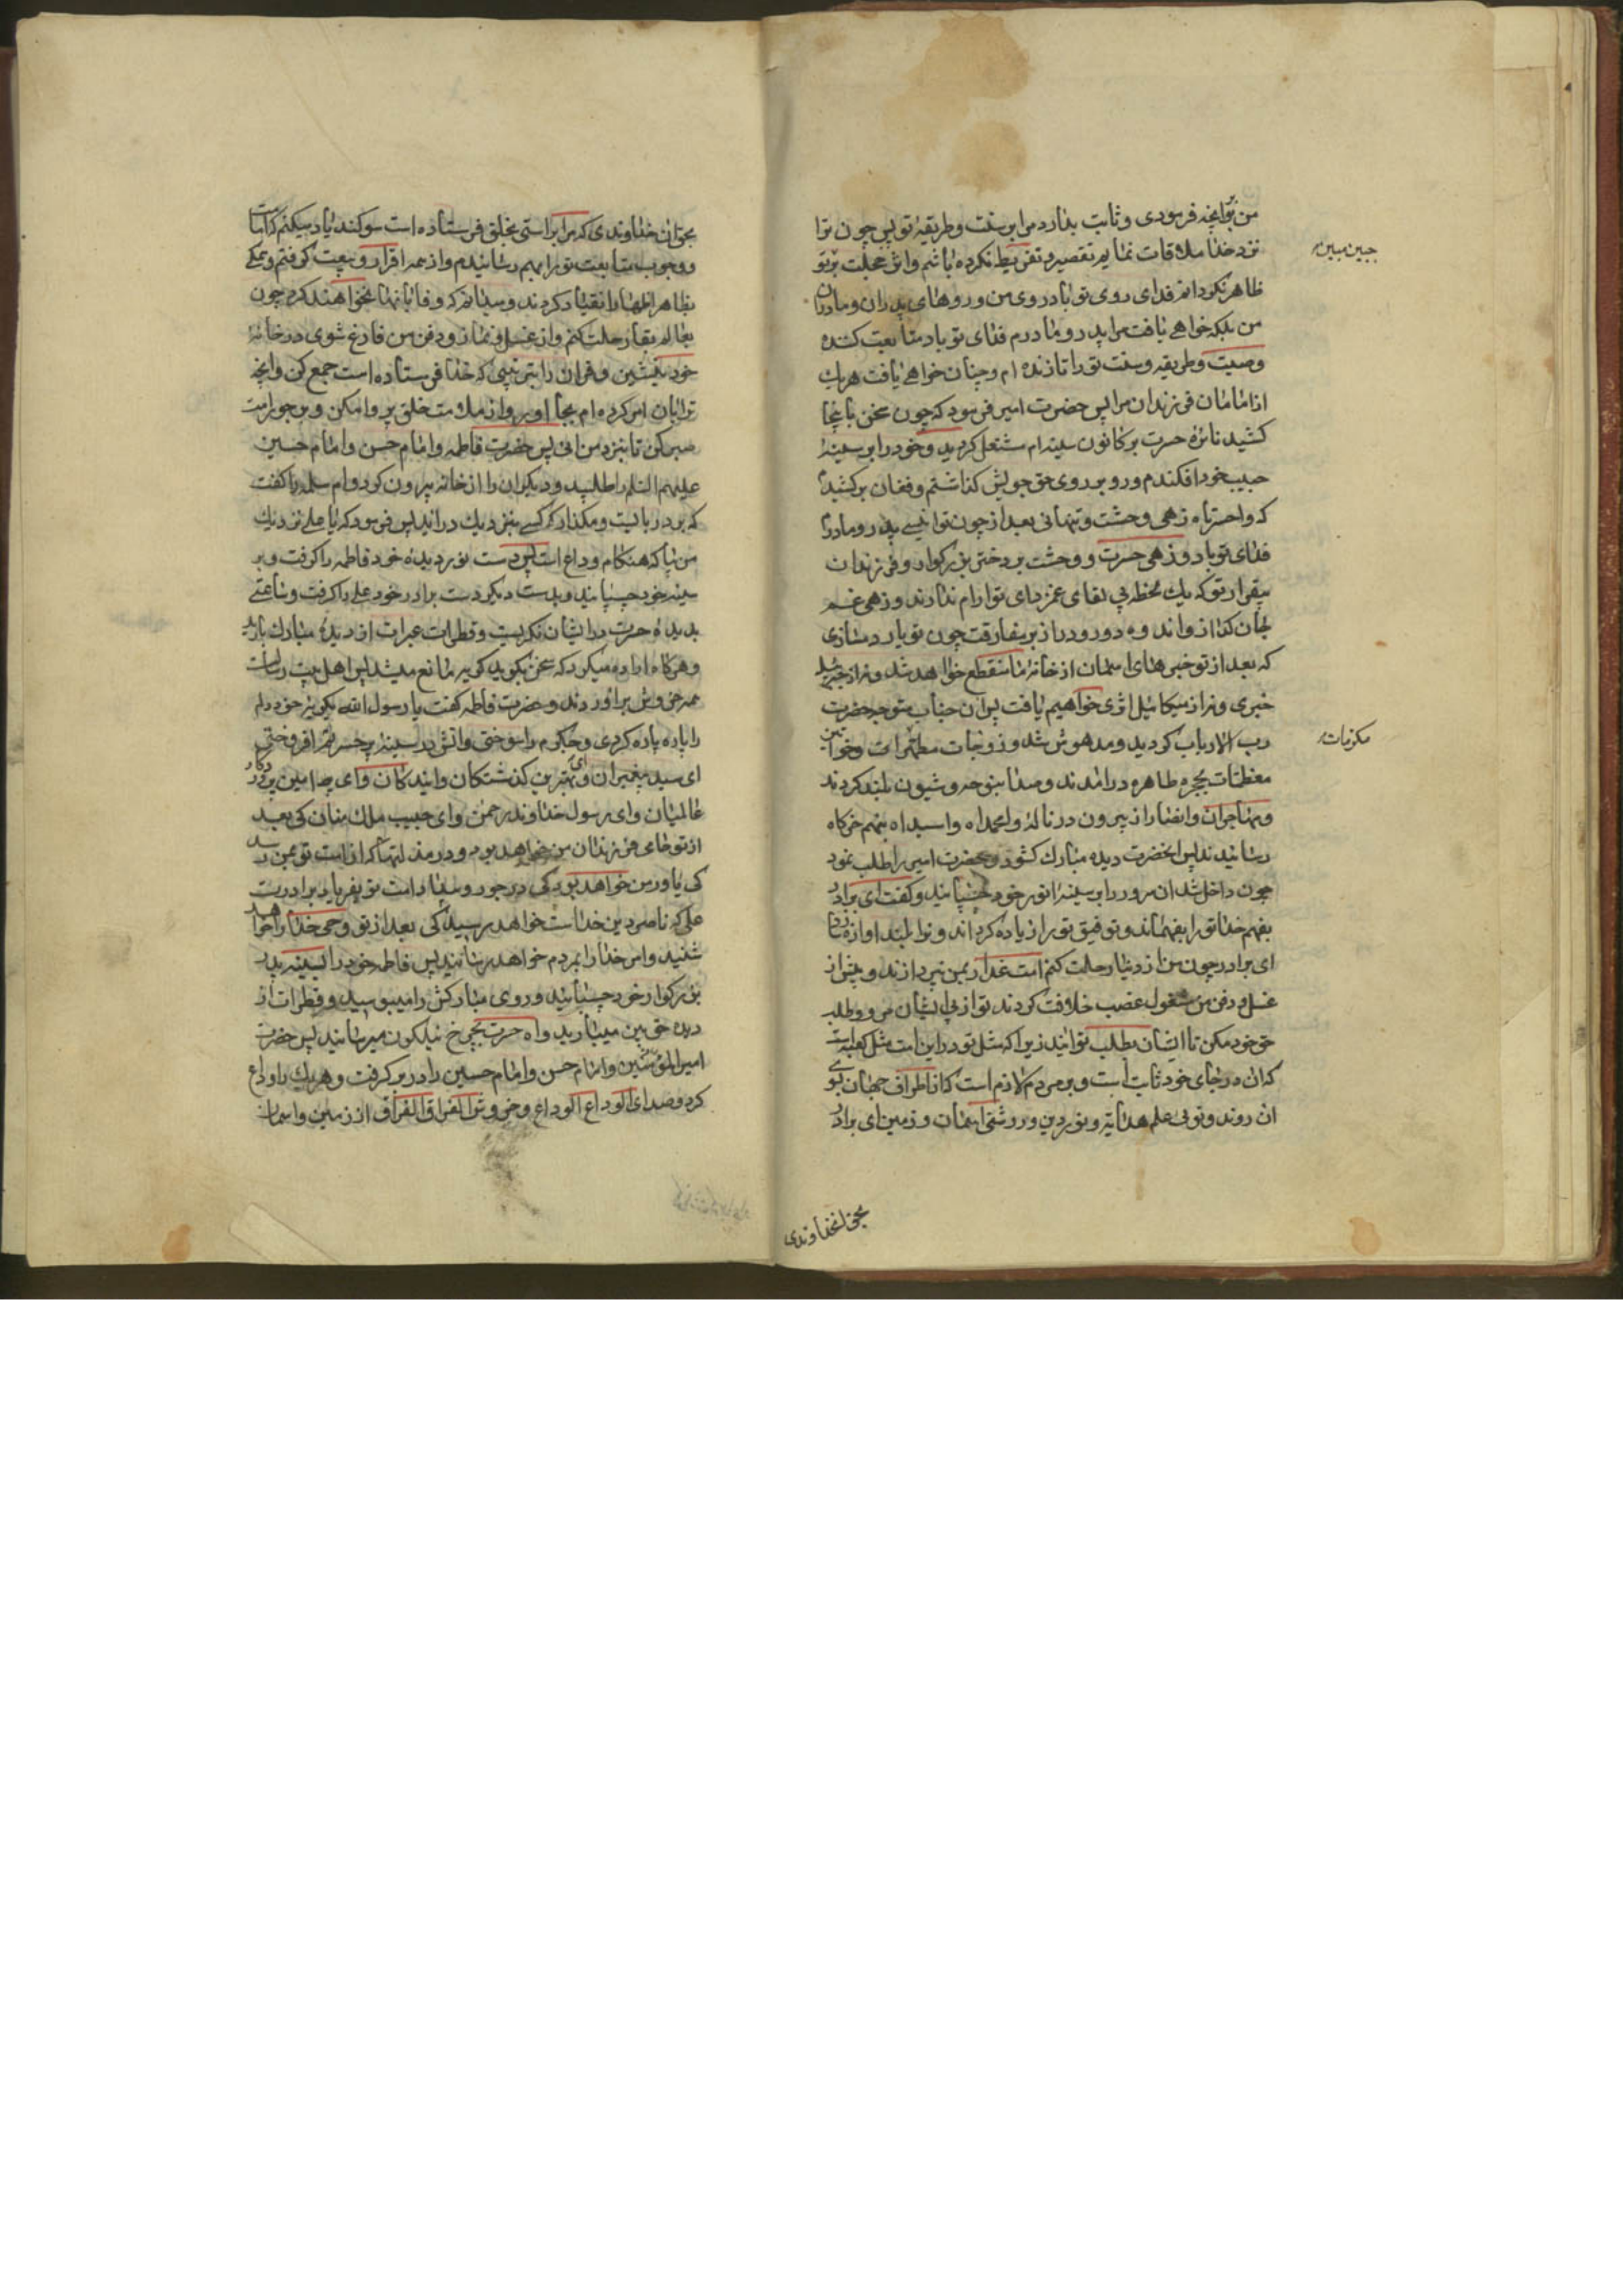 من بتو آنچه فرمودی و ثابت بدارد مرا بر سنت و طریقهٔ تو پس چون ترا
نزد خدا ملاقات نمایم تقصیر و تفریط نکرده باشم و اثر خجلت بر تو
ظاهر نکردانم فدای روی تو باد روی من و روهای پدران و مادران
من بلکه خواهی یافت مرا پدر و مادرم فدای تو باد متابعت کننده
وصیت و طریقه و سنت تو را تا زنده ام و چنان خواهی یافت هر یک
از امامان فرزندان مرا پس حضرت امیر فرمود که چون سخن باینجا
کشید نائرهٔ حسرت بر کانون سینه ام مشتعل کردید و خود را بر سینهٔ
حبیب خود افکندم و رو بر روی حق جویش کذاشتم و فغان برکشیدم
که واحسرتاه زهی وحشت و تنهائی بعد از چون تو انیسی پدر و مادرم
فدای تو باد و زهی حسرت و وحشت بر دختر بزرکوار و فرزندان
بیقرار تو که یک لحظه بی لقای غمزدای تو آرام ندارند و زهی غم
جان کداز و اندوه دور و دراز بر مفارقت چون تو یار دمسازی
که بعد از تو خبرهای آسمان از خانه ما منقطع خواهد شد و نه از جبرئیل
خبری و نه از میکائیل اثری خواهیم یافت پس آن جناب متوجه حضرت
رب الارباب کردید و مدهوش شد و زوجات مطهرات و خواتین
معظمات بحجره طاهره درآمدند و صدا بنوحه و شیون بلند کردند
و مهاجران و انصار از بیرون در ناله وامحمداه واسیداه بنهم خرکاه
رسانیدند پس آنحضرت دیده مبارک کشود و حضرت امیر را طلب نمود
چون داخل شد آن سرور را بر سینهٔ انور خود چسپانید و کفت ای برادر
بفهم خدا تو را بفهماند و توفیق تو را زیاده کرداند و تو را بلند آوازه کرداند
ای برادر چون من از دنیا رحلت کنم امت غدار بمن نپردازند و پیش از
غسل و دفن من مشغول غصب خلافت کردند تو از پی ایشان مرو و طلب
حق خود مکن تا ایشان بطلب تو آیند زیرا که مثل تو در این امت مثل کعبه است
که آن در جای خود ثابت است و بر مردم لازم است که از اطراف جهان بسوی
آن روند و توئی علم هدایت و نور دین و روشنی آسمان و زمین ای برادر
بحق آنخداوندی
جبین مبین
مکرمات
بحق آن خداوندی که مرا براستی بخلق فرستاده است سوکند یاد میکنم که امامت
و وجوب متابعت تو را بهم رسانیدم و از همه اقرار و بیعت کرفتم و همکی
بظاهر اظهار انقیاد کردند و میدانم که وفا بآنها نخواهند کرد چون
بعالم بقا رحلت کنم و از غسل و نماز و دفن من فارغ شوی در خانهٔ
خود بنشین و قرآن را بترتیبی که خدا فرستاده است جمع کن و آنچه
ترا بآن امر کرده ام بجا آور و از ملامت خلق پروا مکن و بر جور امت
صبر کن تا بنزد من آئی پس حضرت فاطمه و امام حسن و امام حسین
علیهم السلم را طلبید و دیکران را از خانه بیرون کرد و ام سلمه را کفت
که بر در بایست و مکذار که کسی بنزدیک در آید پس فرمود که یا علی نزدیک
من بیا که هنکام وداع است پس دست نور دیدهٔ خود فاطمه را کرفت و بر
سینه خود چسپانید و بدست دیکر دست برادر خود علی را کرفت و ساعتی
بدیدهٔ حسرت در ایشان نکریست و قطرات عبرات از دیدهٔ مبارک بارید
و هرکاه اراده میکرد که سخن بکوید کریه مانع میشد پس اهل بیت رسالت
همه خروش برآوردند و حضرت فاطمه کفت یا رسول الله بکریهٔ خود دلم
را پاره پاره کردی و جکرم را سوختی و آتش در سینهٔ پر حسرتم افروختی
ای سید پیغمبران و ای بهترین کذشتکان و آیندکان و ای امین پروردکار
عالمیان و ای رسول خداوند رحمن و ای حبیب ملک منان کی بعد
از تو حامی فرزندان من خواهد بود و در مذلتها که از امت تو بمن رسد
کی یاور من خواهد بود کی در جور و بیداد امت تو بفریاد برادرت
علی که ناصر دین خداست خواهد رسید کی بعد از تو وحی خدا را خواهد
شنید و امر خدا را بمردم خواهد رسانید پس فاطمه خود را بسینهٔ پدر
بزرکوار خود چسپانید و روی مبارکش را میبوسید و قطرات از
دیده حق بین میبارید و آه حسرت بچرخ نیلکون میرسانید پس حضرت
امیرالمؤمنین و امام حسن و امام حسین را در بر کرفت و هر یک را وداع
کرد و صدای الوداع الوداع و خروش الفراق الفراق از زمین و آسمان